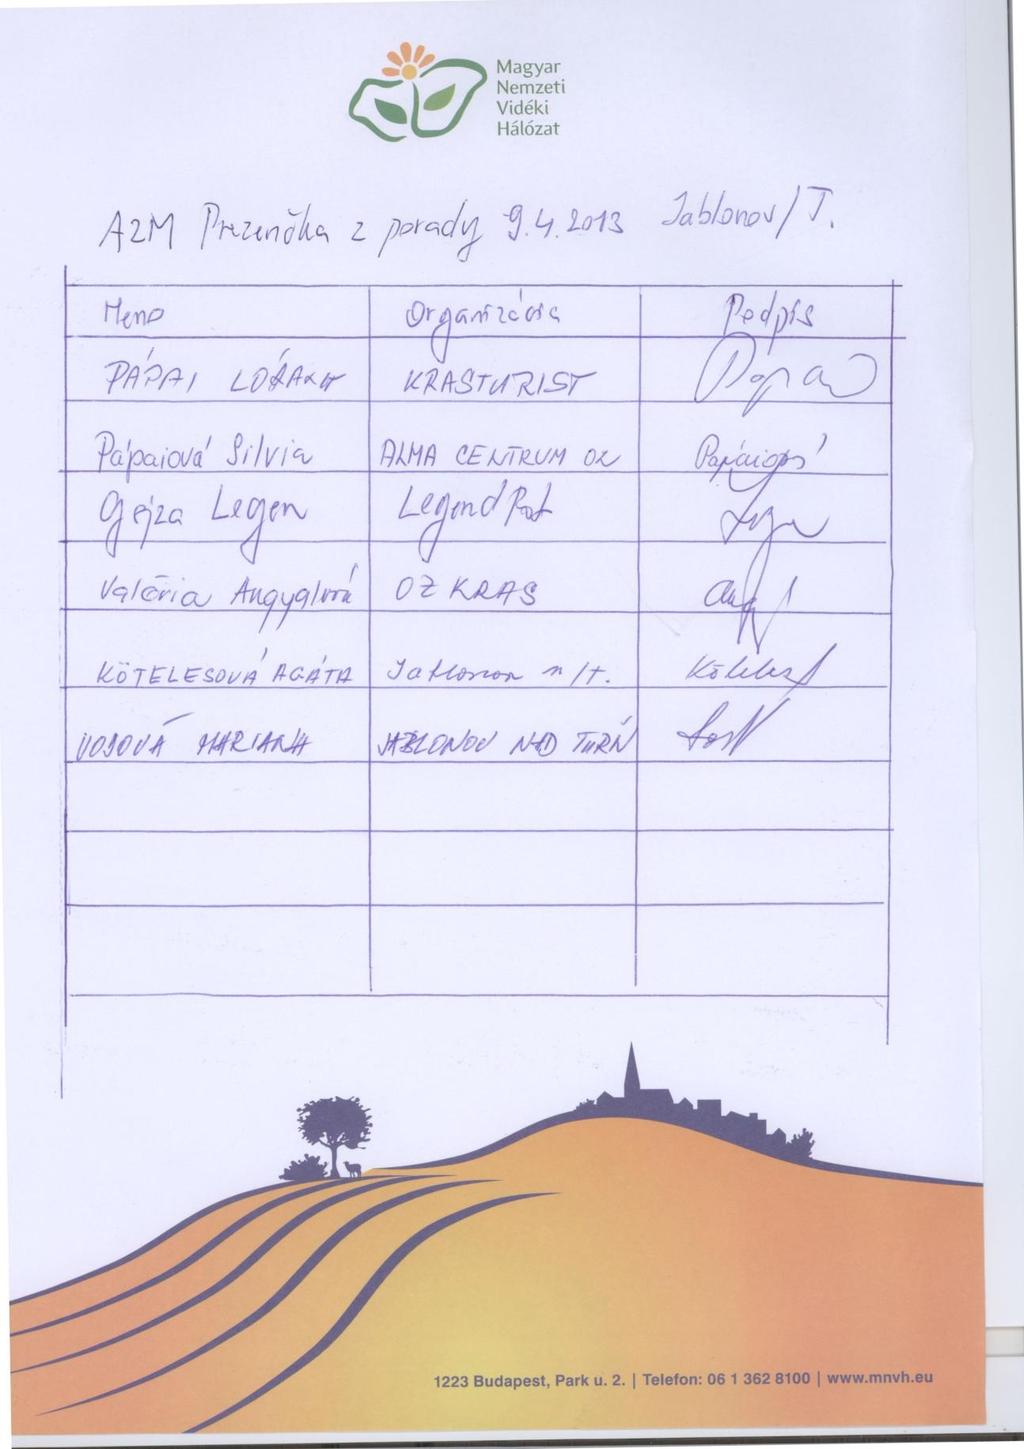 Magyar
Nemzeti
Vidéki
Hálózat
A2M Prezenčka z porady 9.4.2013 Jablonov/T.
Meno Organizácia Podpis
PÁPAI LÓRÁNT KRASTURIST
Pápaiová Silvia ALMA CENTRUM OZ Pápaiová
Gejza Legen Legend Rot
Valéria Angyalová OZ KRAS
KÖTELESOVÁ AGÁTA Jablonov n/T. Köteles
VOJOVÁ MARIANA JABLONOV NAD TURŇ
1223 Budapest, Park u. 2. | Telefon: 06 1 362 8100 | www.mnvh.eu